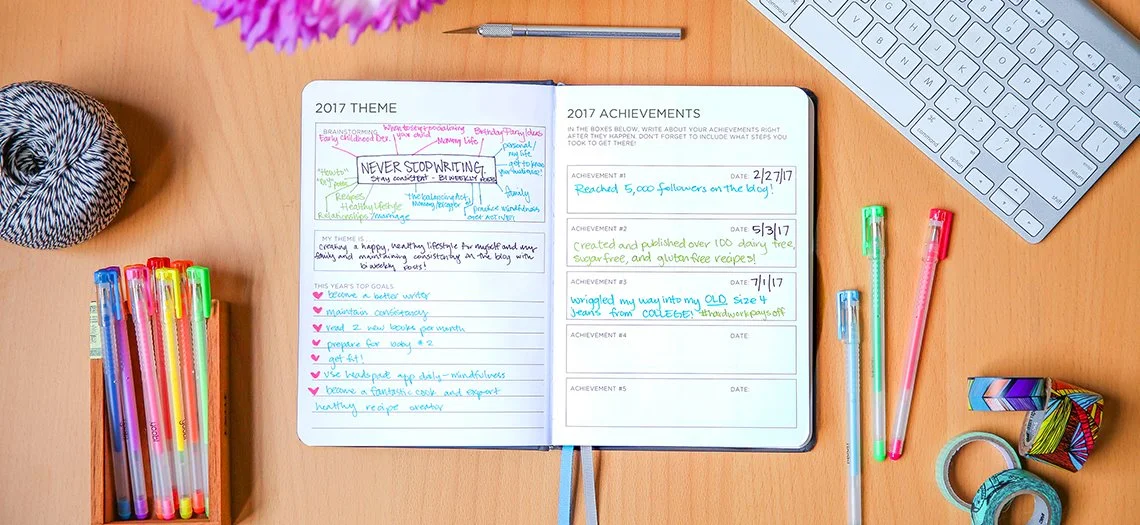 2017 THEME
BRAINSTORMING
Early childhood Dev.
your child
Mommy life
Birthday Party Ideas
personal/
my life
get to know
NEVER STOP WRITING.
Stay consistent - BIWEEKLY
"How to's"
"DIY"
family
Recipes
Healthy lifestyle
Relationships/marriage
The balancing Act,
Mommy/blogger
practice mindfulness
MY THEME IS
creating a happy, healthy lifestyle for myself and my
family and maintaining consistency on the blog with
biweekly posts!
THIS YEAR'S TOP GOALS
become a better writer
maintain consistency
read 2 new books per month
prepare for baby #2
get fit!
use headspace app daily - mindfulness
become a fantastic cook and expert
healthy recipe creator
2017 ACHIEVEMENTS
IN THE BOXES BELOW, WRITE ABOUT YOUR ACHIEVEMENTS RIGHT
AFTER THEY HAPPEN. DON'T FORGET TO INCLUDE WHAT STEPS YOU
TOOK TO GET THERE!
ACHIEVEMENT #1 DATE: 2/27/17
Reached 5,000 followers on the blog!
ACHIEVEMENT #2 DATE: 5/3/17
Created and published over 100 dairy free,
sugar free, and gluten free recipes!
ACHIEVEMENT #3 DATE: 7/1/17
wriggled my way into my OLD size 4
jeans from COLLEGE! #hardworkpaysoff
ACHIEVEMENT #4 DATE:
ACHIEVEMENT #5 DATE:
command
option